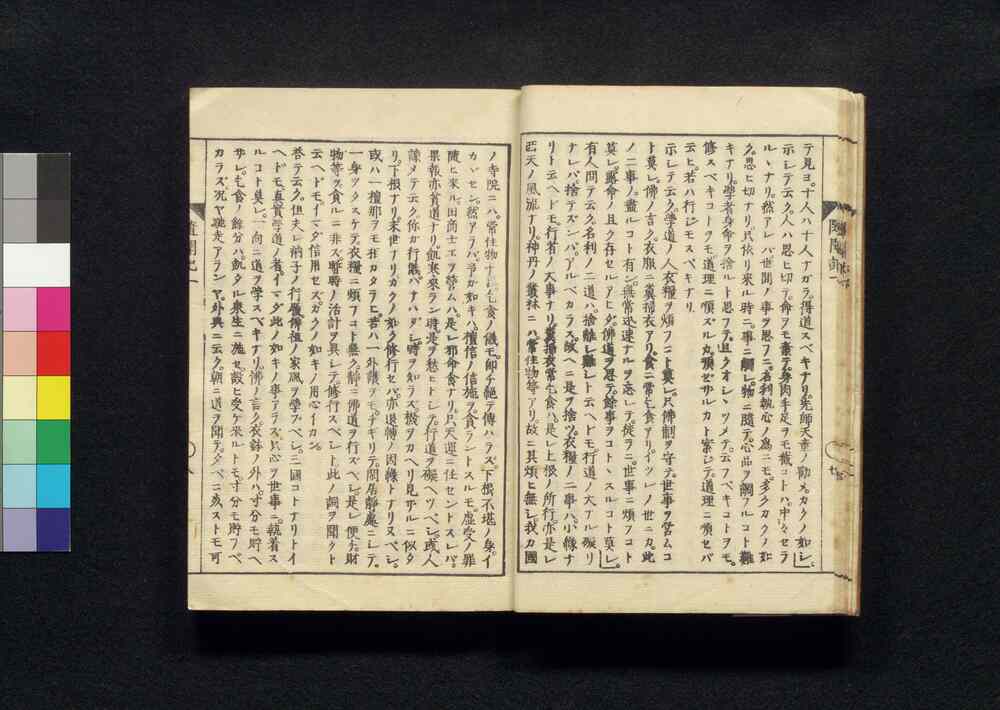 テ見ヨ十人ハ十人ナガラ得道スベキナリ先師天童ノ勧メカクノ如シ
示シテ云ク人ハ思ヒ切テ命ヲモ棄テ身肉手足ヲモ截コトハ中々セラ
ルヽナリ然レバ世間ノ事ヲ思フニ名利執心ノ為ニモ多クカクノ如
ク思ヒ切ナリ只依リ来ル時ニ事ニ触レ物ニ随テ心品ヲ調フルコト難
キナリ学者命ヲ捨ルト思フテ且クオシシヅメテ云フベキコトヲモ
修スベキコトヲモ道理ニ順ズルカ順ゼザルカト案ジテ道理ニ順セバ
云ヒ若ハ行ジモスベキナリ
示シテ云ク学道ノ人衣糧ヲ煩フコト莫レ只佛制ヲ守テ世事ヲ営ムコ
ト莫レ佛ノ言ク衣服ニ糞掃衣アリ食ニ常乞食アリイツレノ世ニカ此
ノ二事ノ盡ルコト有ン無常迅速ナルヲ忘レテ徒ラニ世事ニ煩フコト
莫レ露命ノ且ク存セルアヒダ佛道ヲ思テ餘事ヲコトヽスルコト莫レ
有人問テ云ク名利ノ二道ハ捨離シ難シト云ヘドモ行道ノ大ナル礙リ
ナレバ捨テズンバアルベカラス故ヘニ是ヲ捨ツ衣糧ノ二事ハ小縁ナ
リト云ヘドモ行者ノ大事ナリ糞掃衣常乞食ハ是レ上根ノ所行亦是レ
西天ノ風流ナリ神丹ノ叢林ニハ常住物等アリ故ニ其煩ヒ無シ我カ國
ノ寺院ニハ常住物ナシ乞食ノ儀モ即チ絶テ傳ハラズ下根不堪ノ身イ
カヾセン然アラバ予カ如キハ檀信ノ信施ヲ貪ラントスルモ虚受ノ罪
随ヒ来ル田商士工ヲ營ムハ是レ邪命食ナリ只天運ニ任セントスレバ
果報亦貧道ナリ飢寒来ラン時是ヲ愁ヒトシテ行道ヲ礙ヘツベシ或人
諫メテ云ク你カ行儀太タ
リ下根ナリ末世ナリカクノ如ク修行セバ亦退轉ノ因縁トナリヌベシ
或ハ一檀那ヲモカタラヒ若ハ一外護ヲモチギリテ閑居静處ニシテ
一身ヲタスケテ衣糧ニ煩フコト無ク静ニ佛道ヲ行ズベシ是レ便チ財
物等ヲ貪ルニ非ズ暫時ノ活計ヲ具シテ修行スベシト此ノ詞ヲ聞クト
云ヘドモイマタ信用セズカクノ如キノ用心イカン
答テ云ク但夫レ衲子ノ行履佛祖ノ家風ヲ學ブベシ三國コトナリトイ
ヘドモ真實學道ノ者イマダ此ノ如キノ事アラズ只心ヲ世事ニ執着ス
ルコト莫レ一向ニ道ヲ学スベキナリ佛ノ言ク衣鉢ノ外ハ寸分モ貯ヘ
ザレ乞食ノ餘分ハ飢タル衆生ニ施セ設ヒ受ケ来ルトモ寸分モ貯フベ
カラズ況ヤ馳走アランヤ外典ニ云ク朝ニ道ヲ聞テタベニ死ストモ可